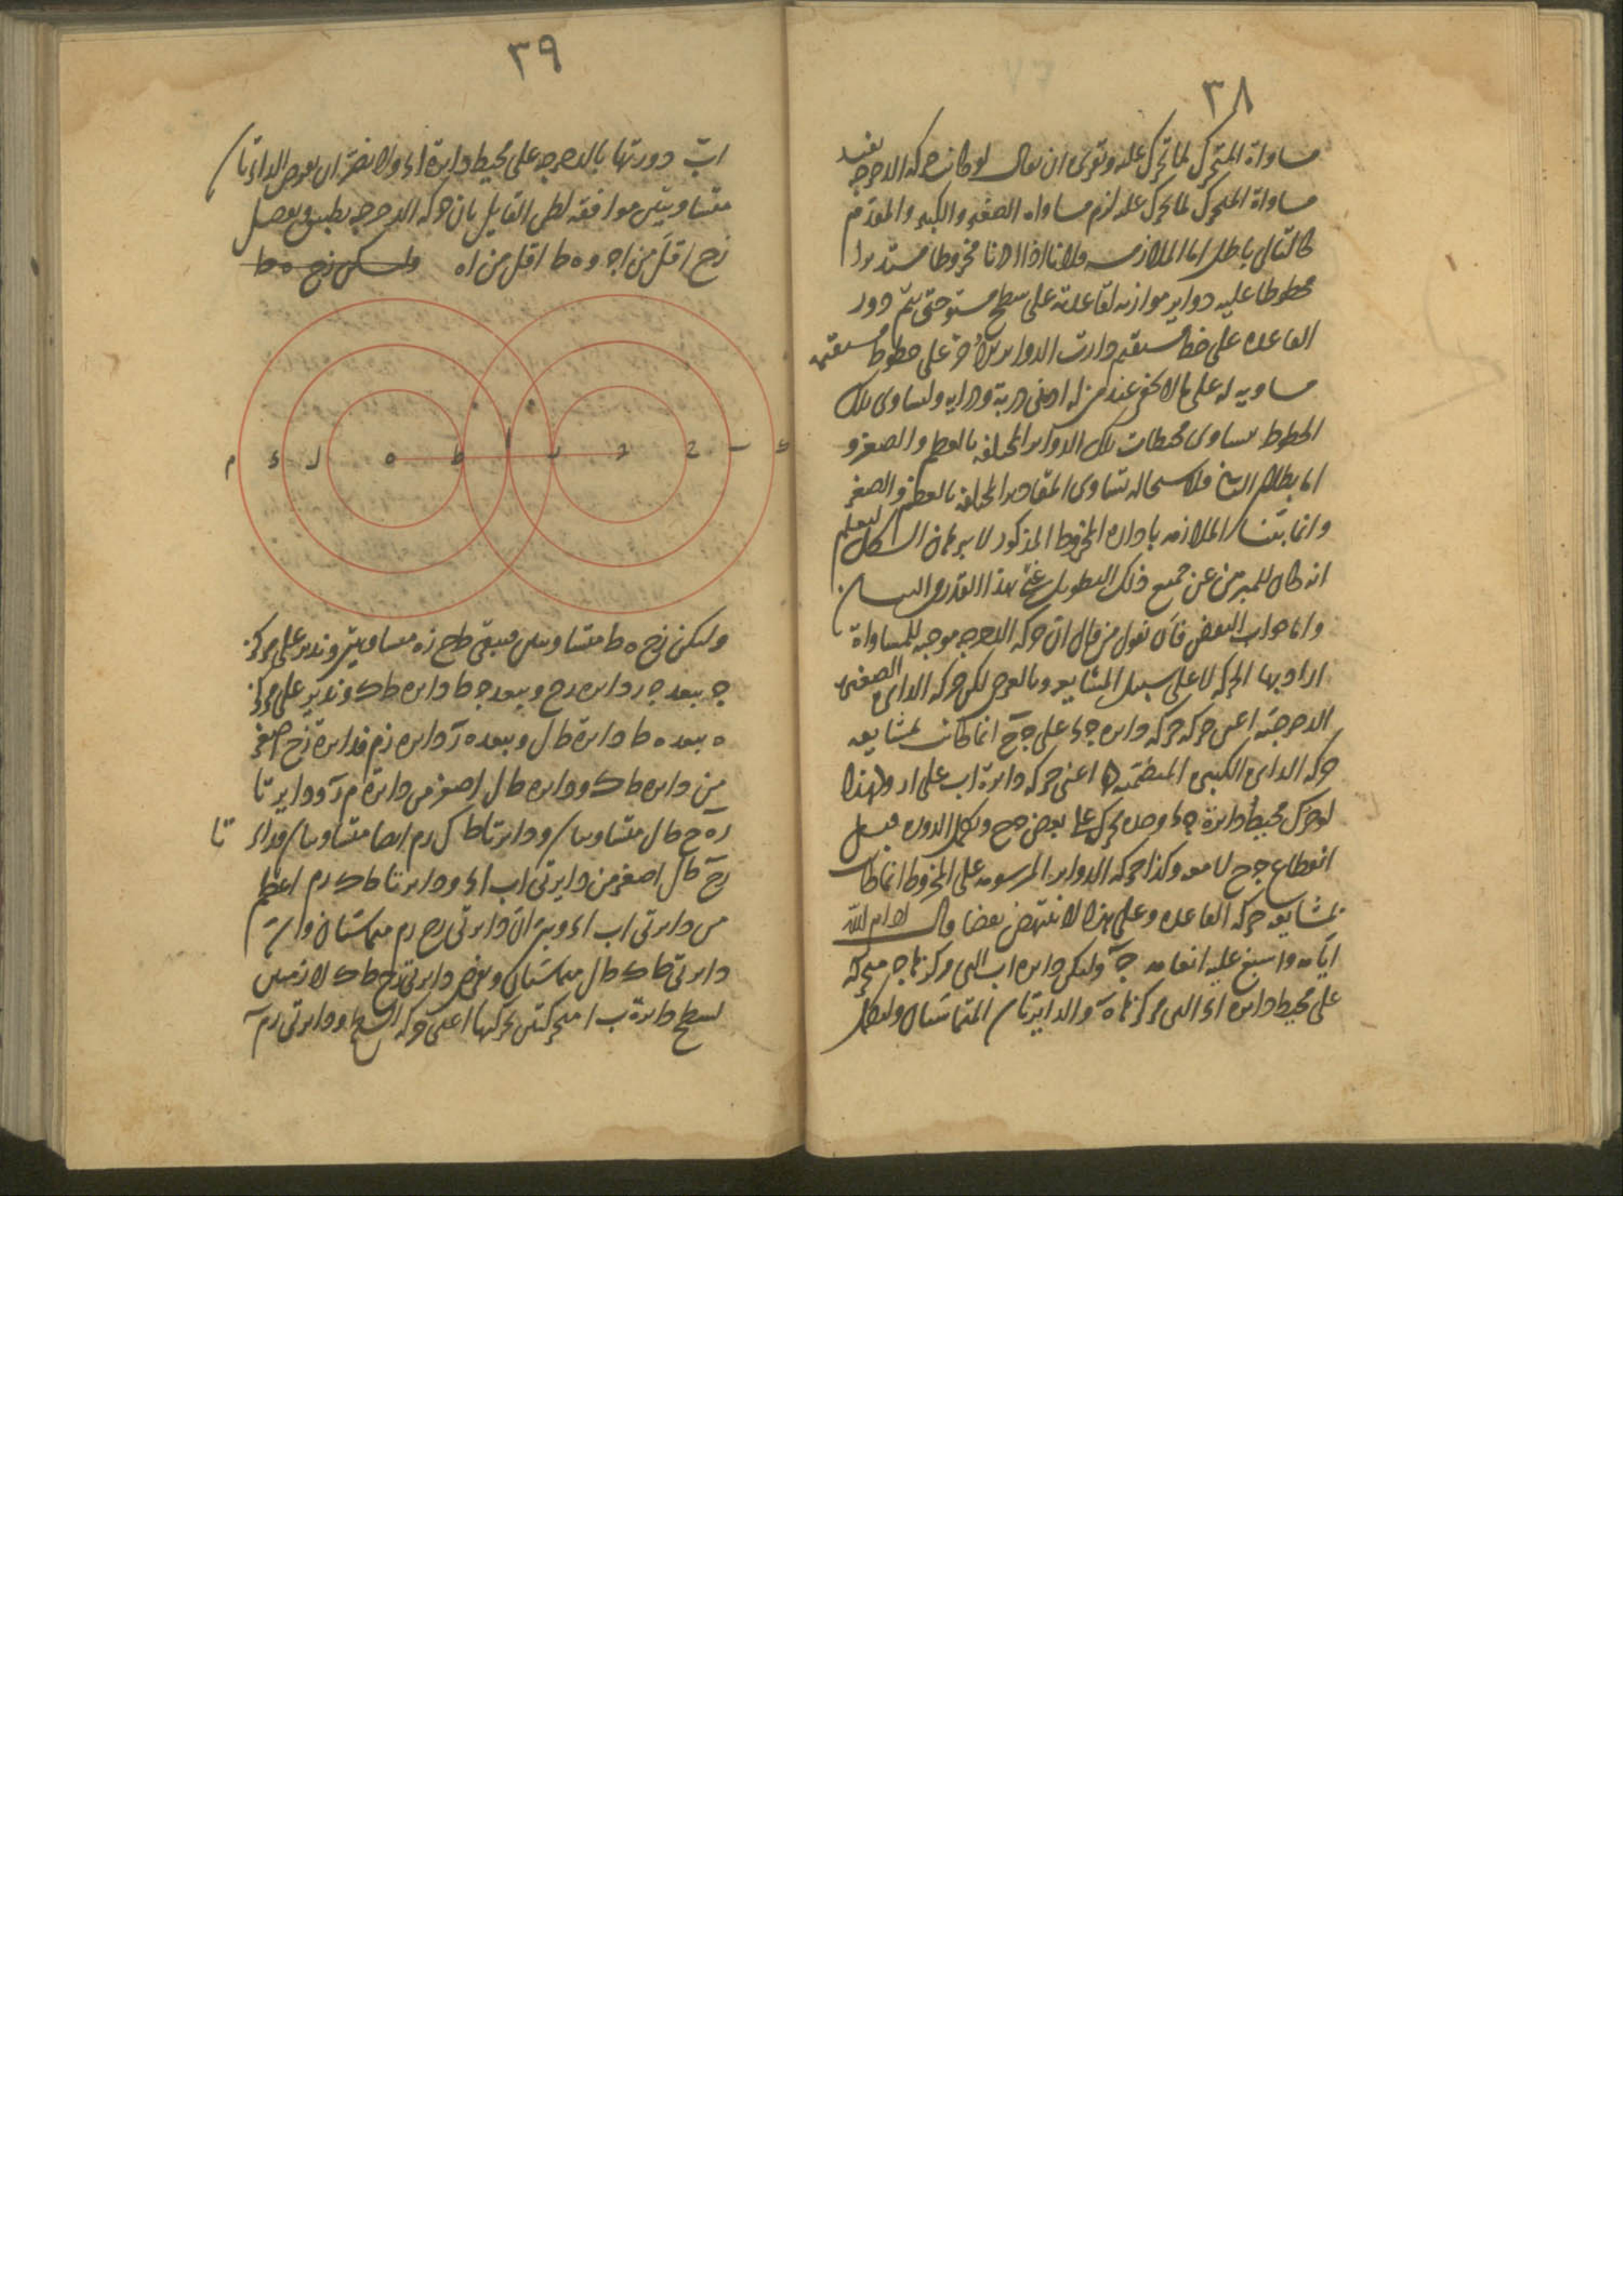 ٣٨
مساواة المتحرك لما تحرك عليه وتقرير ان يقال لو كانت حركه الدحرجه تفيد
مساواة المتحرك لما تحرك عليه لزم مساواه الصغير والكبير والمقدم
كالتالى باطل اما الملازمه فلانا اذا ادرنا مخروطا مستديرا
مخطوطا عليه دواير موازيه لقاعدته على سطح مستو حتى يتم دور
القاعده على خط مستقيم دارت الدواير الاخر على خطوط مستقيمه
مساويه له على ما لا يخفى عند من له ادنى دربة ودرايه وتساوى تلك
الخطوط تساوى محيطات تلك الدواير المختلفه بالعظم والصغر و
اما بطلان التالى فلاستحاله تساوى المقادير المختلفه بالعظم والصغر
وانما بينا الملازمه باداره المخروط المذكور لا ببرهان الشكل ليعلم
انه كان للمبرهن عن جميع ذلك التطويل غنى بهذا القدر من البيان
واما جواب البعض فان نقول من قال ان حركه الدحرجه موجبه للمساواة
اراد بها الحركه لا على سبيل المشايعه وبالعرض لكن حركه الدايره الصغيره
الدحرجيه اعنى حركه دايره جد على جح انما كانت لمشايعه
حركه الدايره الكبيره المنضمه اعنى حركه دايرة اب على ار ولهذا
لو حرك محيط دايرة جد وحده تحرك على بعض جح وتكمل الدوره قبل
انقطاع جح لا معه وكذا حركه الدواير المرسومه على المخروط انما كانت
لمشايعه حركه القاعده وعلى هذا لا ينتهض نقضا قال ادام الله
ايامه واسبغ عليه انعامه وليكن دايره اب التى مركزها ج متحركه
على محيط دايره اد التى مركزها ه والدايرتان المتماستان ولتكمل
٣٩
اب دورتها بالدحرجه على محيط دايرة اد ولا يضر ان نفرض الدايرتان
متساويتين موافقه لظن القايل بان حركه الدحرجه تطبيق ونفصل
زح اقل من اج و ه ط اقل من اه وليكن زح ه ط
م د ل ه ط ا ر ج ح ب ك
وليكن زح ه ط متساويين فيبقى طح زه متساويين وندير على مركز
ج ببعد ج ر دايره رح وببعد ج ط دايره طك وندير على مركز
ه ببعد ه ط دايرة طل وببعد ه ر دايره زم فدايرة زح اصغر
من دايره طك ودايره طل اصغر من دايرة م ر ودايرتا
رح طل متساويتان ودايرتا طك رم ايضا متساويتان فدايرتا
رح طل اصغر من دايرتى اب اد ودايرتا طك رم اعظم
من دايرتى اب اد وبين ان دايرتى رح رم متماستان وان
دايرتى طك طل متماستان ونفرض دايرتى زح طك لازمتين
لسطح دايرة ب ا متحركتين بحركتها اعنى حركه السطح ودايرتى رم